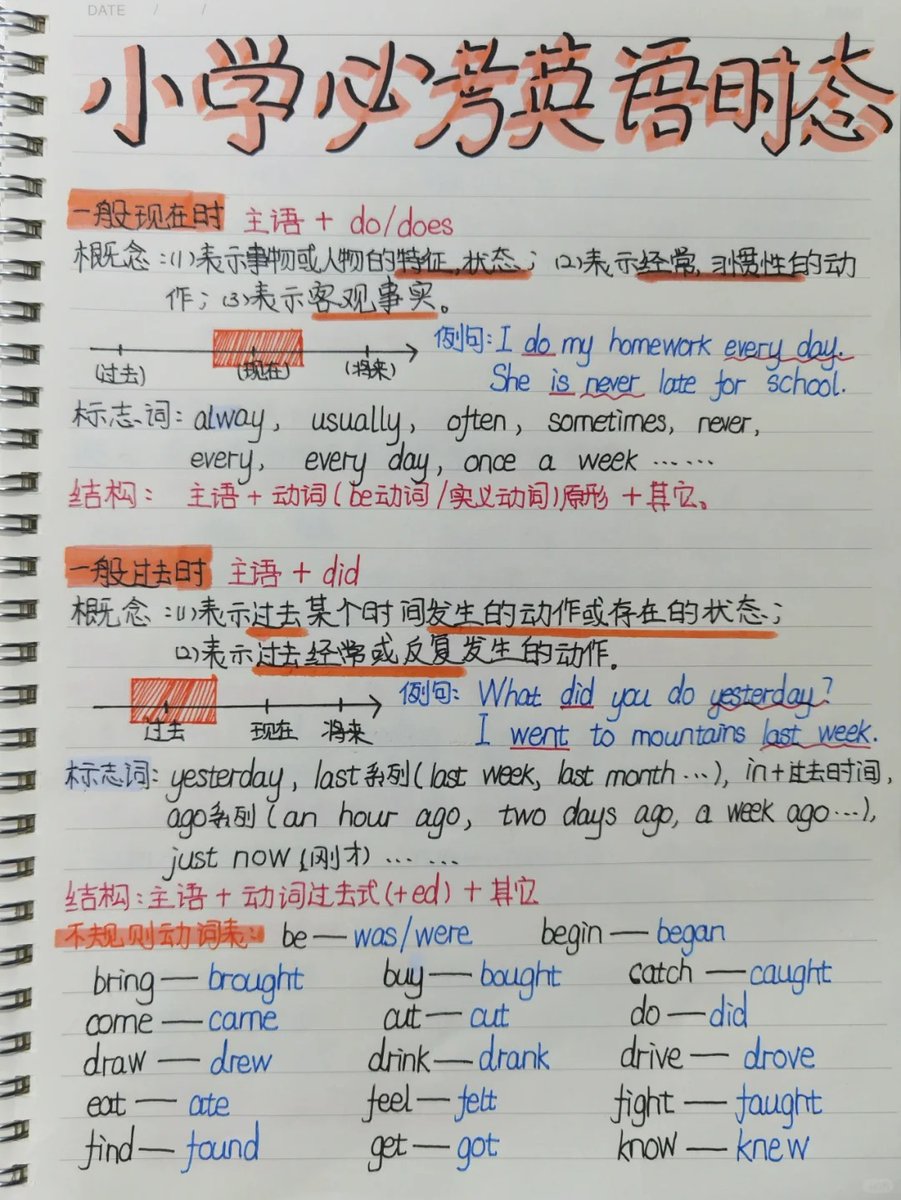 DATE / /
小学必考英语时态
一般现在时 主语 + do/does
概念：(1)表示事物或人物的特征,状态； (2)表示经常,习惯性的动
作；(3)表示客观事实。
例句：I do my homework every day.
(过去) (现在) (将来) She is never late for school.
标志词：alway, usually, often, sometimes, never,
every, every day, once a week ……
结构： 主语 + 动词(be动词/实义动词)原形 + 其它。
一般过去时 主语 + did
概念：(1)表示过去某个时间发生的动作或存在的状态；
(2)表示过去经常或反复发生的动作.
例句： What did you do yesterday?
过去 现在 将来 I went to mountains last week.
标志词：yesterday, last系列(last week, last month …), in+过去时间,
ago系列(an hour ago, two days ago, a week ago …),
just now(刚才) … …
结构：主语 + 动词过去式(+ed) + 其它
不规则动词表： be — was/were begin — began
bring — brought buy — bought catch — caught
come — came cut — cut do — did
draw — drew drink — drank drive — drove
eat — ate feel — felt fight — faught
find — found get — got know — knew